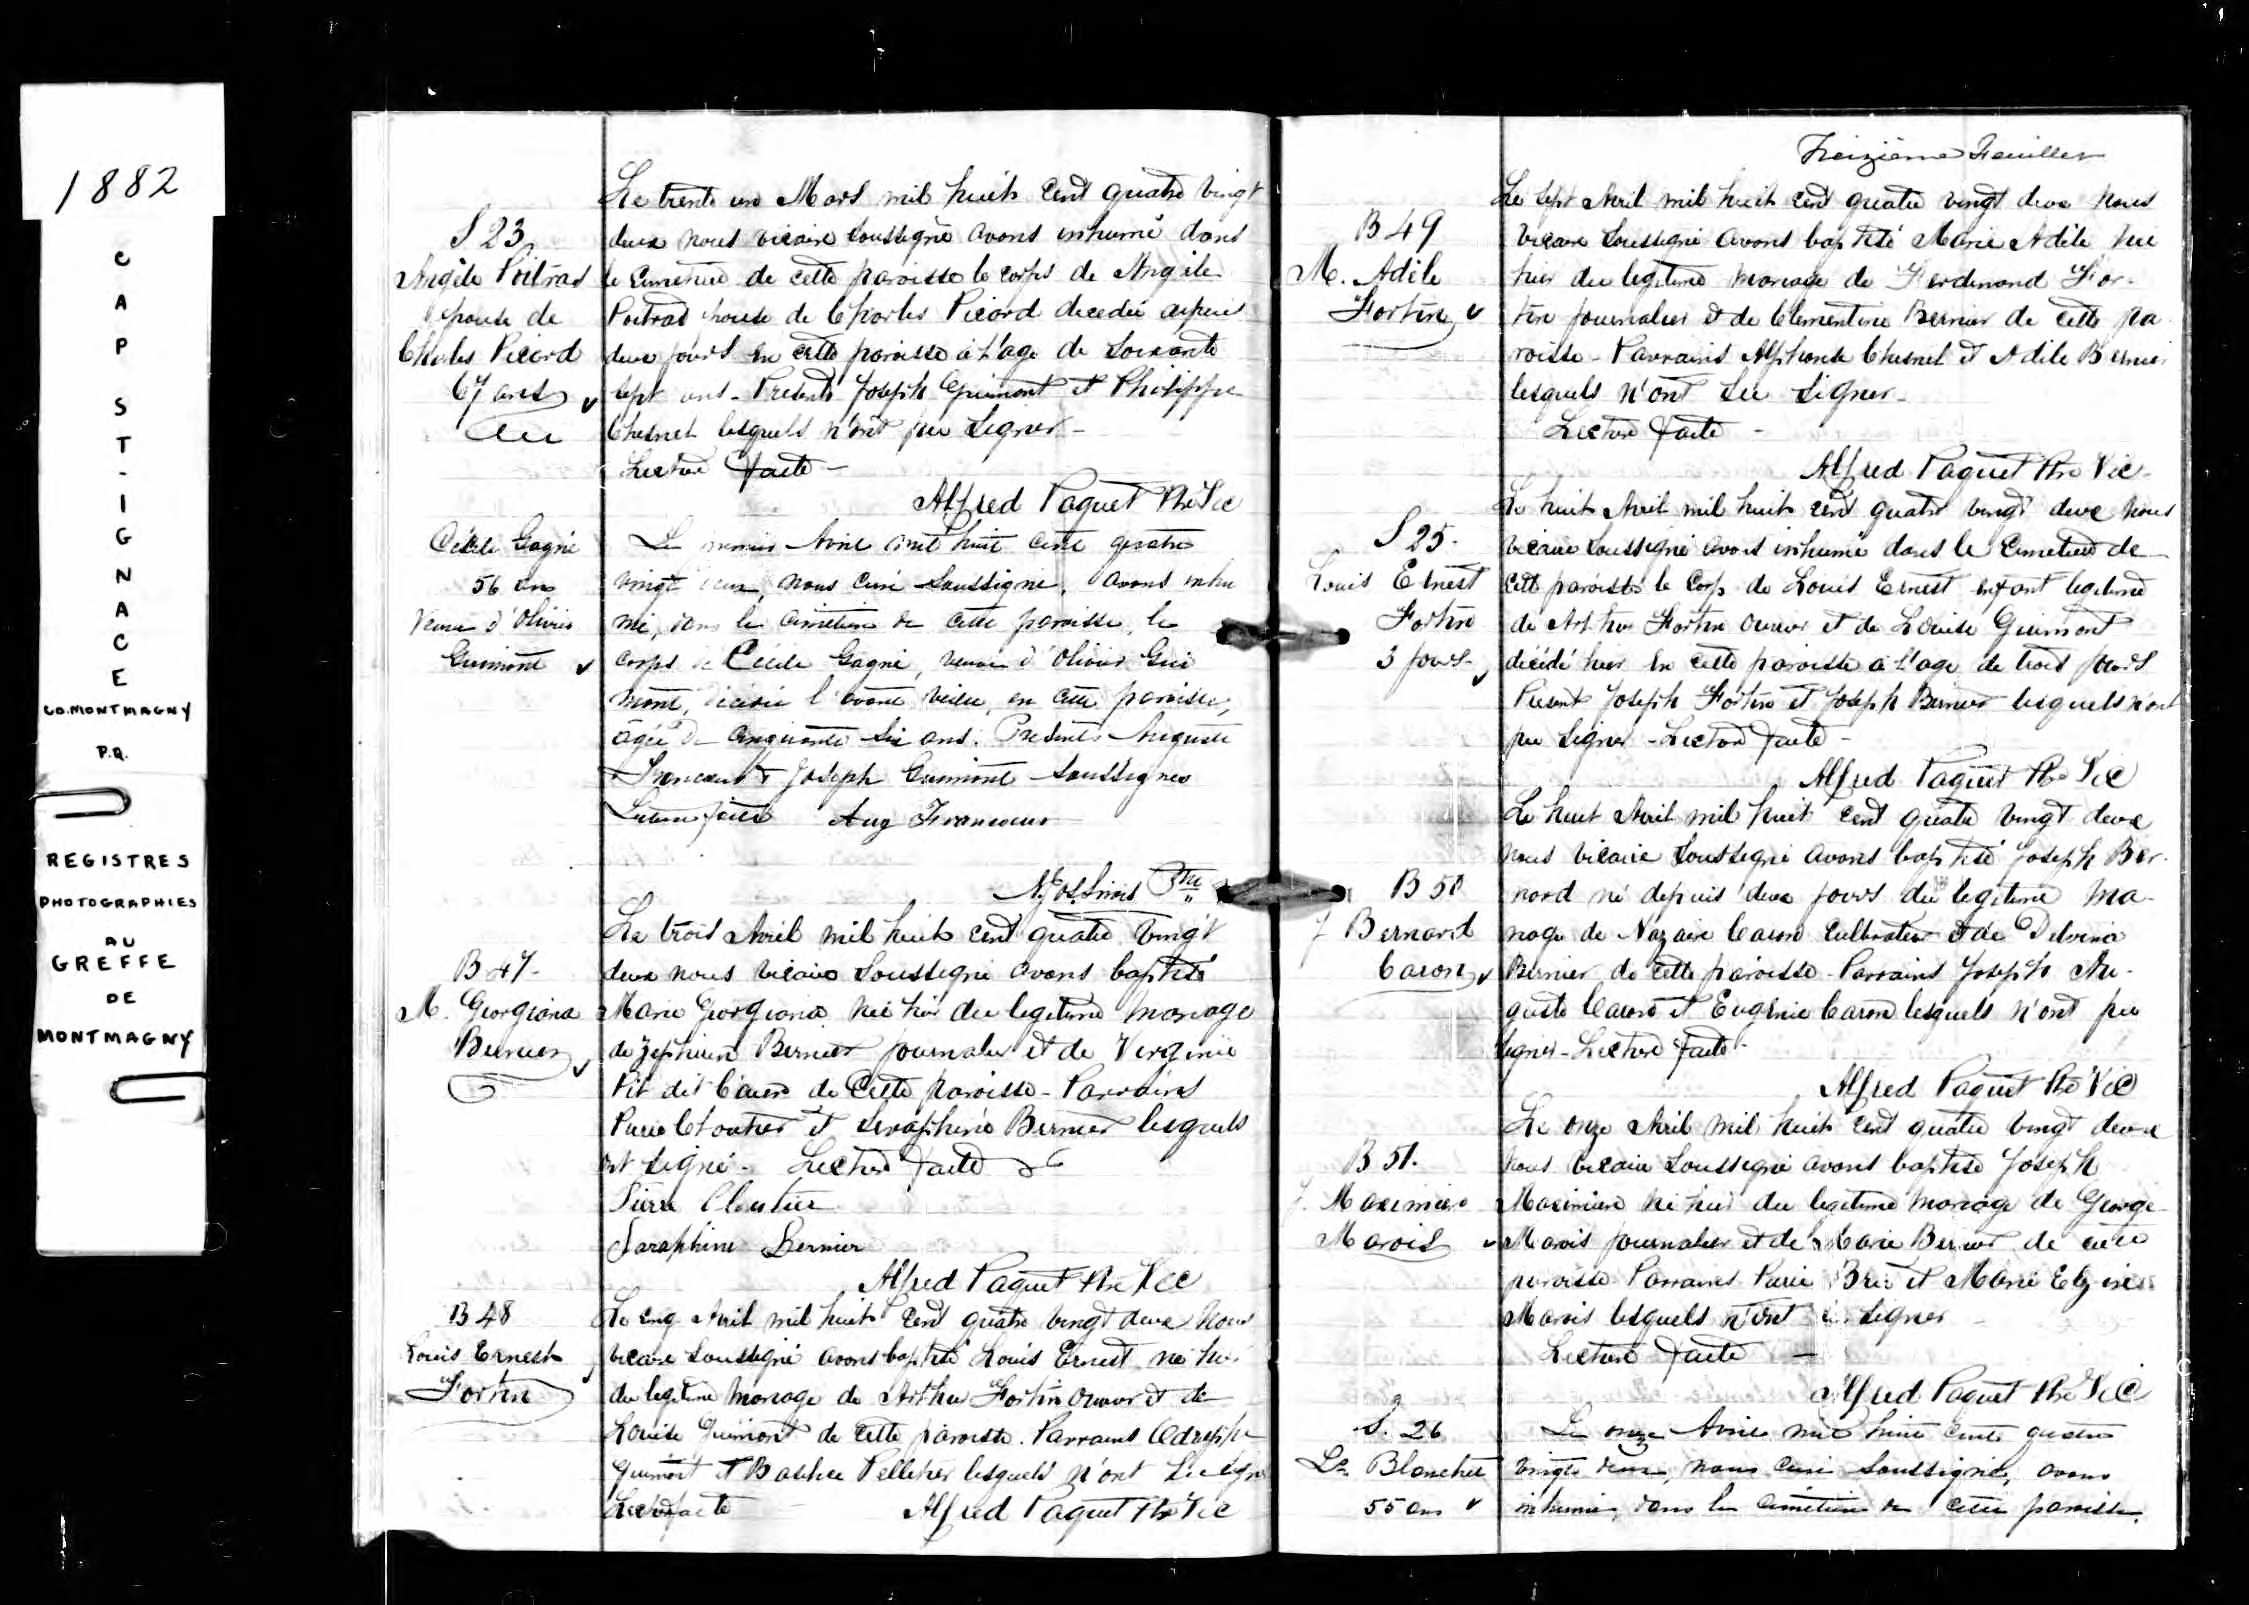 1882
CAP ST-IGNACE
CO. MONTMAGNY
P.Q.
REGISTRES
PHOTOGRAPHIES
AU
GREFFE
DE
MONTMAGNY
S 23
Angèle Poitras
épouse de
Charles Picard
67 ans
Le trente un Mars mil huit cent quatre vingt
deux nous vicaire soussigné avons inhumé dans
le cimetière de cette paroisse le corps de Angèle
Poitras épouse de Charles Picard decedée depuis
deux jours en cette paroisse à l'age de soixante
sept ans - Presents Joseph Guimont et Philippe
Chesnel lesquels n'ont pu signer -
Lecture faite -
Alfred Paquet Ptre Vic
Cécile Gagné
56 ans
Veuve d'Olivier
Guimont
Le premier Avril mil huit cent quatre
vingt deux, nous curé soussigné, avons inhu
mé, dans le cimetière de cette paroisse, le
corps de Cécile Gagné, veuve d'Olivier Gui
mont, décédée l'avant veille, en cette paroisse,
agée de cinquante six ans. Présents Auguste
Francoeur & Joseph Guimont soussignés
Lecture faite Aug Francoeur
Ptre
B 47-
M. Georgiana
Bernier
Le trois Avril mil huit cent quatre vingt
deux nous vicaire soussigné avons baptisé
Marie Georgiana née hier du legitime mariage
de Zephirin Bernier journalier et de Virginie
Pit dit de cette paroisse - Parrains
Pierre Cloutier et Seraphine Bernier lesquels
ont signé - Lecture faite
Pierre Cloutier
Saraphine Bernier
Alfred Paquet Ptre Vic
B 48
Louis Ernest
Fortin
Le cinq Avril mil huit cent quatre vingt deux nous
vicaire soussigné avons baptisé Louis Ernest né hier
du legitime mariage de Arthur Fortin et de
Louise Guimont de cette paroisse. Parrains
Guimont et Pelletier lesquels n'ont su signer
Lecture faite Alfred Paquet Ptre Vic
Treizième Feuillet
B 49
M. Adèle
Fortin
Le sept Avril mil huit cent quatre vingt deux nous
vicaire soussigné avons baptisé Marie Adèle née
hier du legitime mariage de Ferdinand For-
tin journalier et de Clementine Bernier de cette pa
roisse - Parrains Alphonse Chesnel et Adèle Bernier
lesquels n'ont su signer -
Lecture faite -
Alfred Paquet Ptre Vic -
S 25 -
Louis Ernest
Fortin
3 jours -
Le huit Avril mil huit cent quatre vingt deux nous
vicaire soussigné avons inhumé dans le cimetière de
cette paroisse le corps de Louis Ernest enfant legitime
de Arthur Fortin et de Louise Guimont
décédé hier en cette paroisse à l'age de trois jours
Présent Joseph Fortin et Joseph Bernier lesquels n'ont
pu signer - Lecture faite -
Alfred Paquet Ptre Vic
B 50
J Bernard
Caron
Le huit Avril mil huit cent quatre vingt deux
nous vicaire soussigné avons baptisé Joseph Ber-
nard né depuis deux jours du legitime ma-
riage de Nazaire Caron cultivateur et de Delvina
Bernier de cette paroisse - Parrains Joseph Au-
guste Caron et Eugénie Caron lesquels n'ont pu
signer - Lecture faite -
Alfred Paquet Ptre Vic
B 51.
J. Maximien
Marois
Le onze Avril mil huit cent quatre vingt deux
nous vicaire soussigné avons baptisé Joseph
Maximien né hier du legitime mariage de George
Marois journalier et de Marie Bernier de cette
paroisse Parrains Pierre et Marie
Marois lesquels n'ont signer
Lecture faite -
Alfred Paquet Ptre Vic
S. 26
Blanchet
55 ans
Le onze Avril mil huit cent quatre
vingt deux, nous curé soussigné, avons
inhumé, dans le cimetière de cette paroisse,